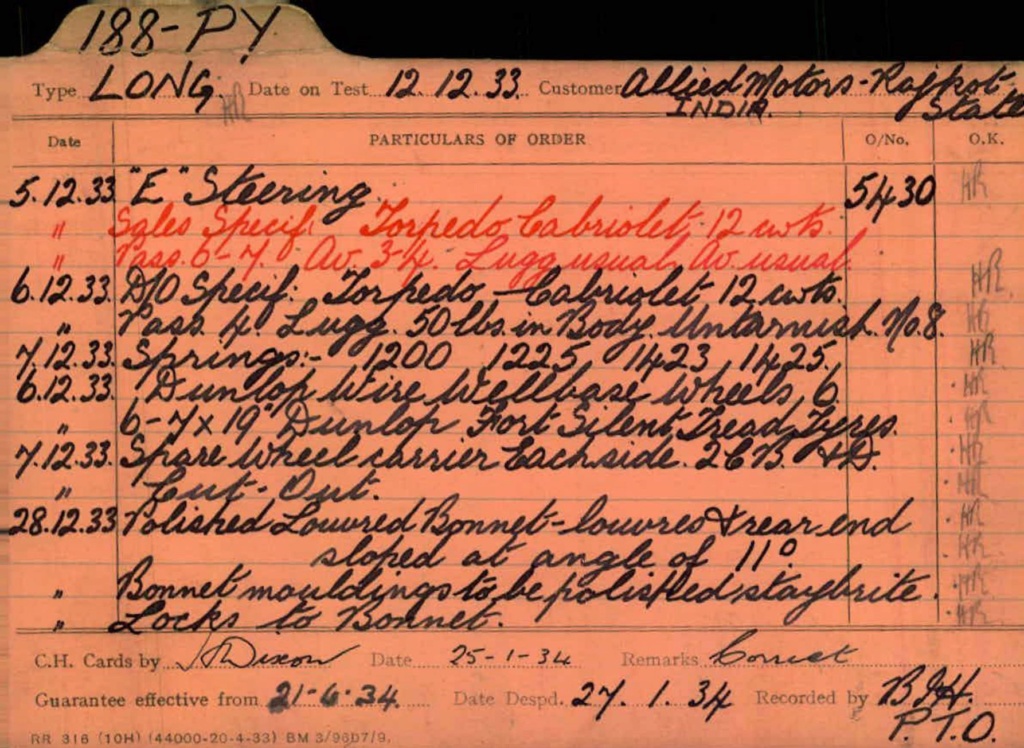 188-PY
Type LONG. HR Date on Test 12.12.33. Customer Allied Motors-Rajkot State
INDIA.
Date PARTICULARS OF ORDER O/No. O.K.
5.12.33 "E" Steering. 5430 HR
" Sales Specif: Torpedo Cabriolet, 12 cwts.
" Pass. 6-7. Av. 3-4. Lugg usual, Av. usual.
6.12.33. D/O Specif: Torpedo-Cabriolet, 12 cwts. HR
" Pass. 4. Lugg. 50 lbs. in Body. Untarnish. No. 8. HR
7.12.33. Springs:- 1200 1225 1423 1425. HR
6.12.33. Dunlop Wire Wellbase Wheels, 6. HR
" 6-7x19" Dunlop Fort Silent Tread Tyres. HR
7.12.33. Spare Wheel carrier Each side. 2 C.B. & D. HR
" Cut-Out. HR
28.12.33 Polished Louvred Bonnet-louvres & rear end HR
sloped at angle of 11°. HR
" Bonnet mouldings to be polished staybrite. HR
" Locks to Bonnet. HR
C.H. Cards by Dixon Date 25-1-34 Remarks Correct
Guarantee effective from 21-6-34. Date Despd. 27.1.34 Recorded by B.J.H.
P.T.O.
RR 316 (10H) (44000-20-4-33) BM 3/9607/9.